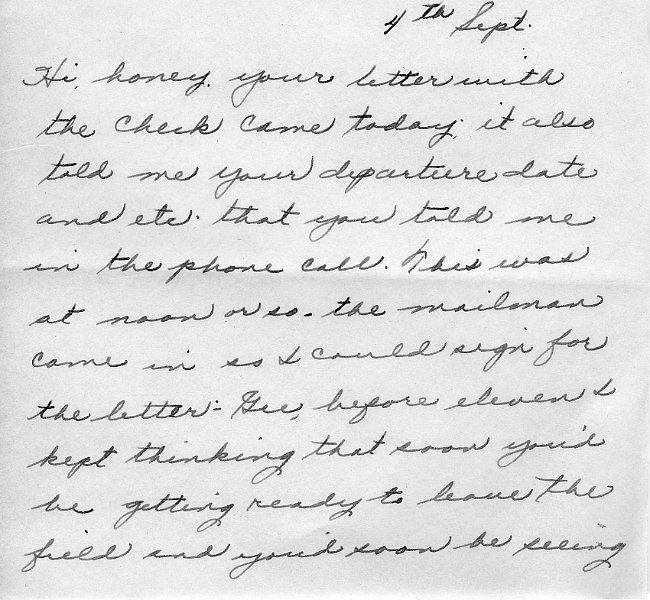 4th Sept.
Hi, honey, your letter with
the check came today; it also
told me your departure date
and etc. that you told me
in the phone call. This was
at noon or so - the mailman
came in so I could sign for
the letter - Gee, before eleven I
kept thinking that soon you'd
be getting ready to leave the
field and you'd soon be seeing